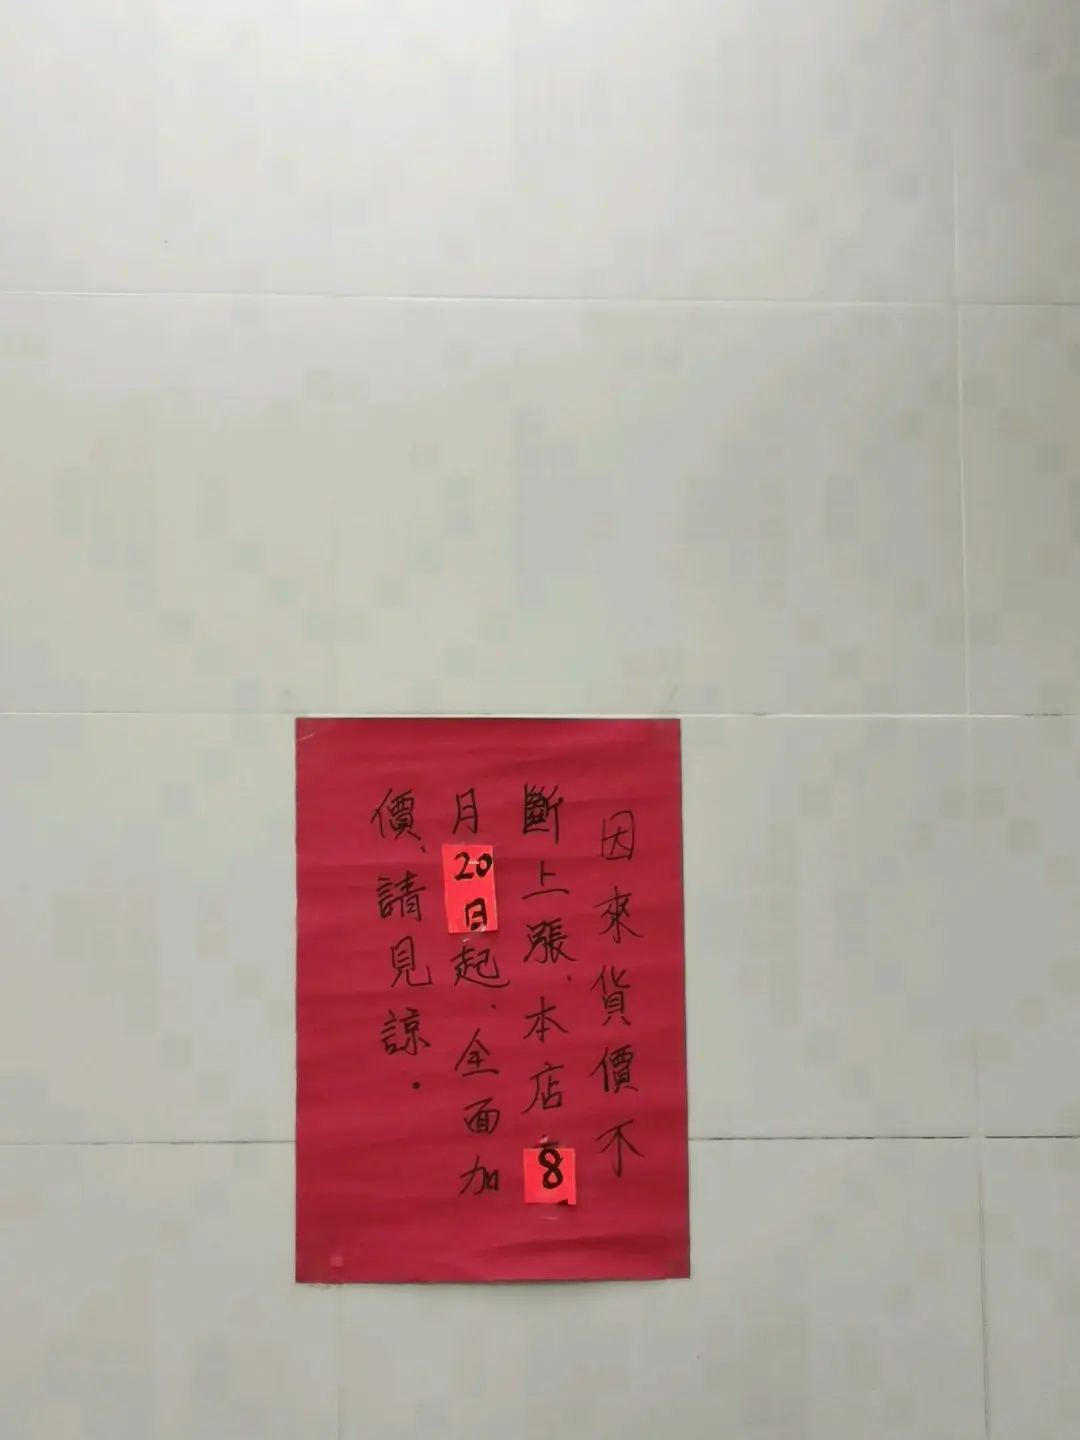 因來貨價不
斷上漲、本店8
月20日起、全面加
價、請見諒.